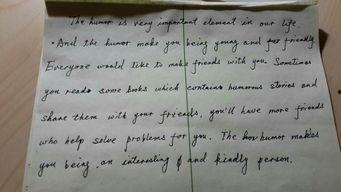 The humor is very important element in our life.
And the humor make you being young and friendly.
Everyone would like to make friends with you. Sometimes
you read some books which contains humorous stories and
share them with your friends, you'll have more friends
who help solve problems for you. The humor makes
you being an interesting and kindly person.